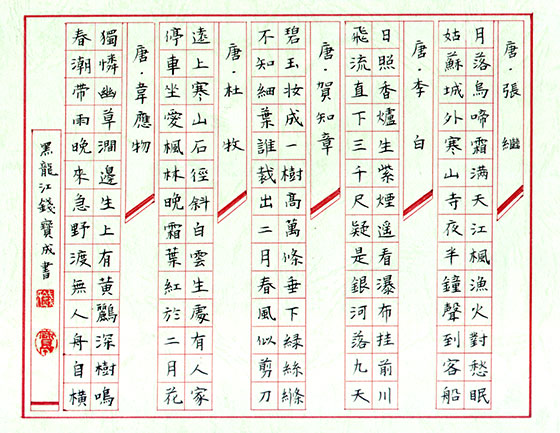 唐·張繼
月落烏啼霜满天江楓漁火對愁眠
姑蘇城外寒山寺夜半鐘聲到客船
唐·李白
日照香爐生紫煙遥看瀑布挂前川
飛流直下三千尺疑是銀河落九天
唐·賀知章
碧玉妆成一樹高萬條垂下緑絲縧
不知細葉誰裁出二月春風似剪刀
唐·杜牧
遠上寒山石徑斜白雲生處有人家
停車坐愛楓林晚霜葉紅於二月花
唐·韋應物
獨憐幽草澗邊生上有黄鸝深樹鳴
春潮帶雨晚來急野渡無人舟自横
黑龍江錢寶成書